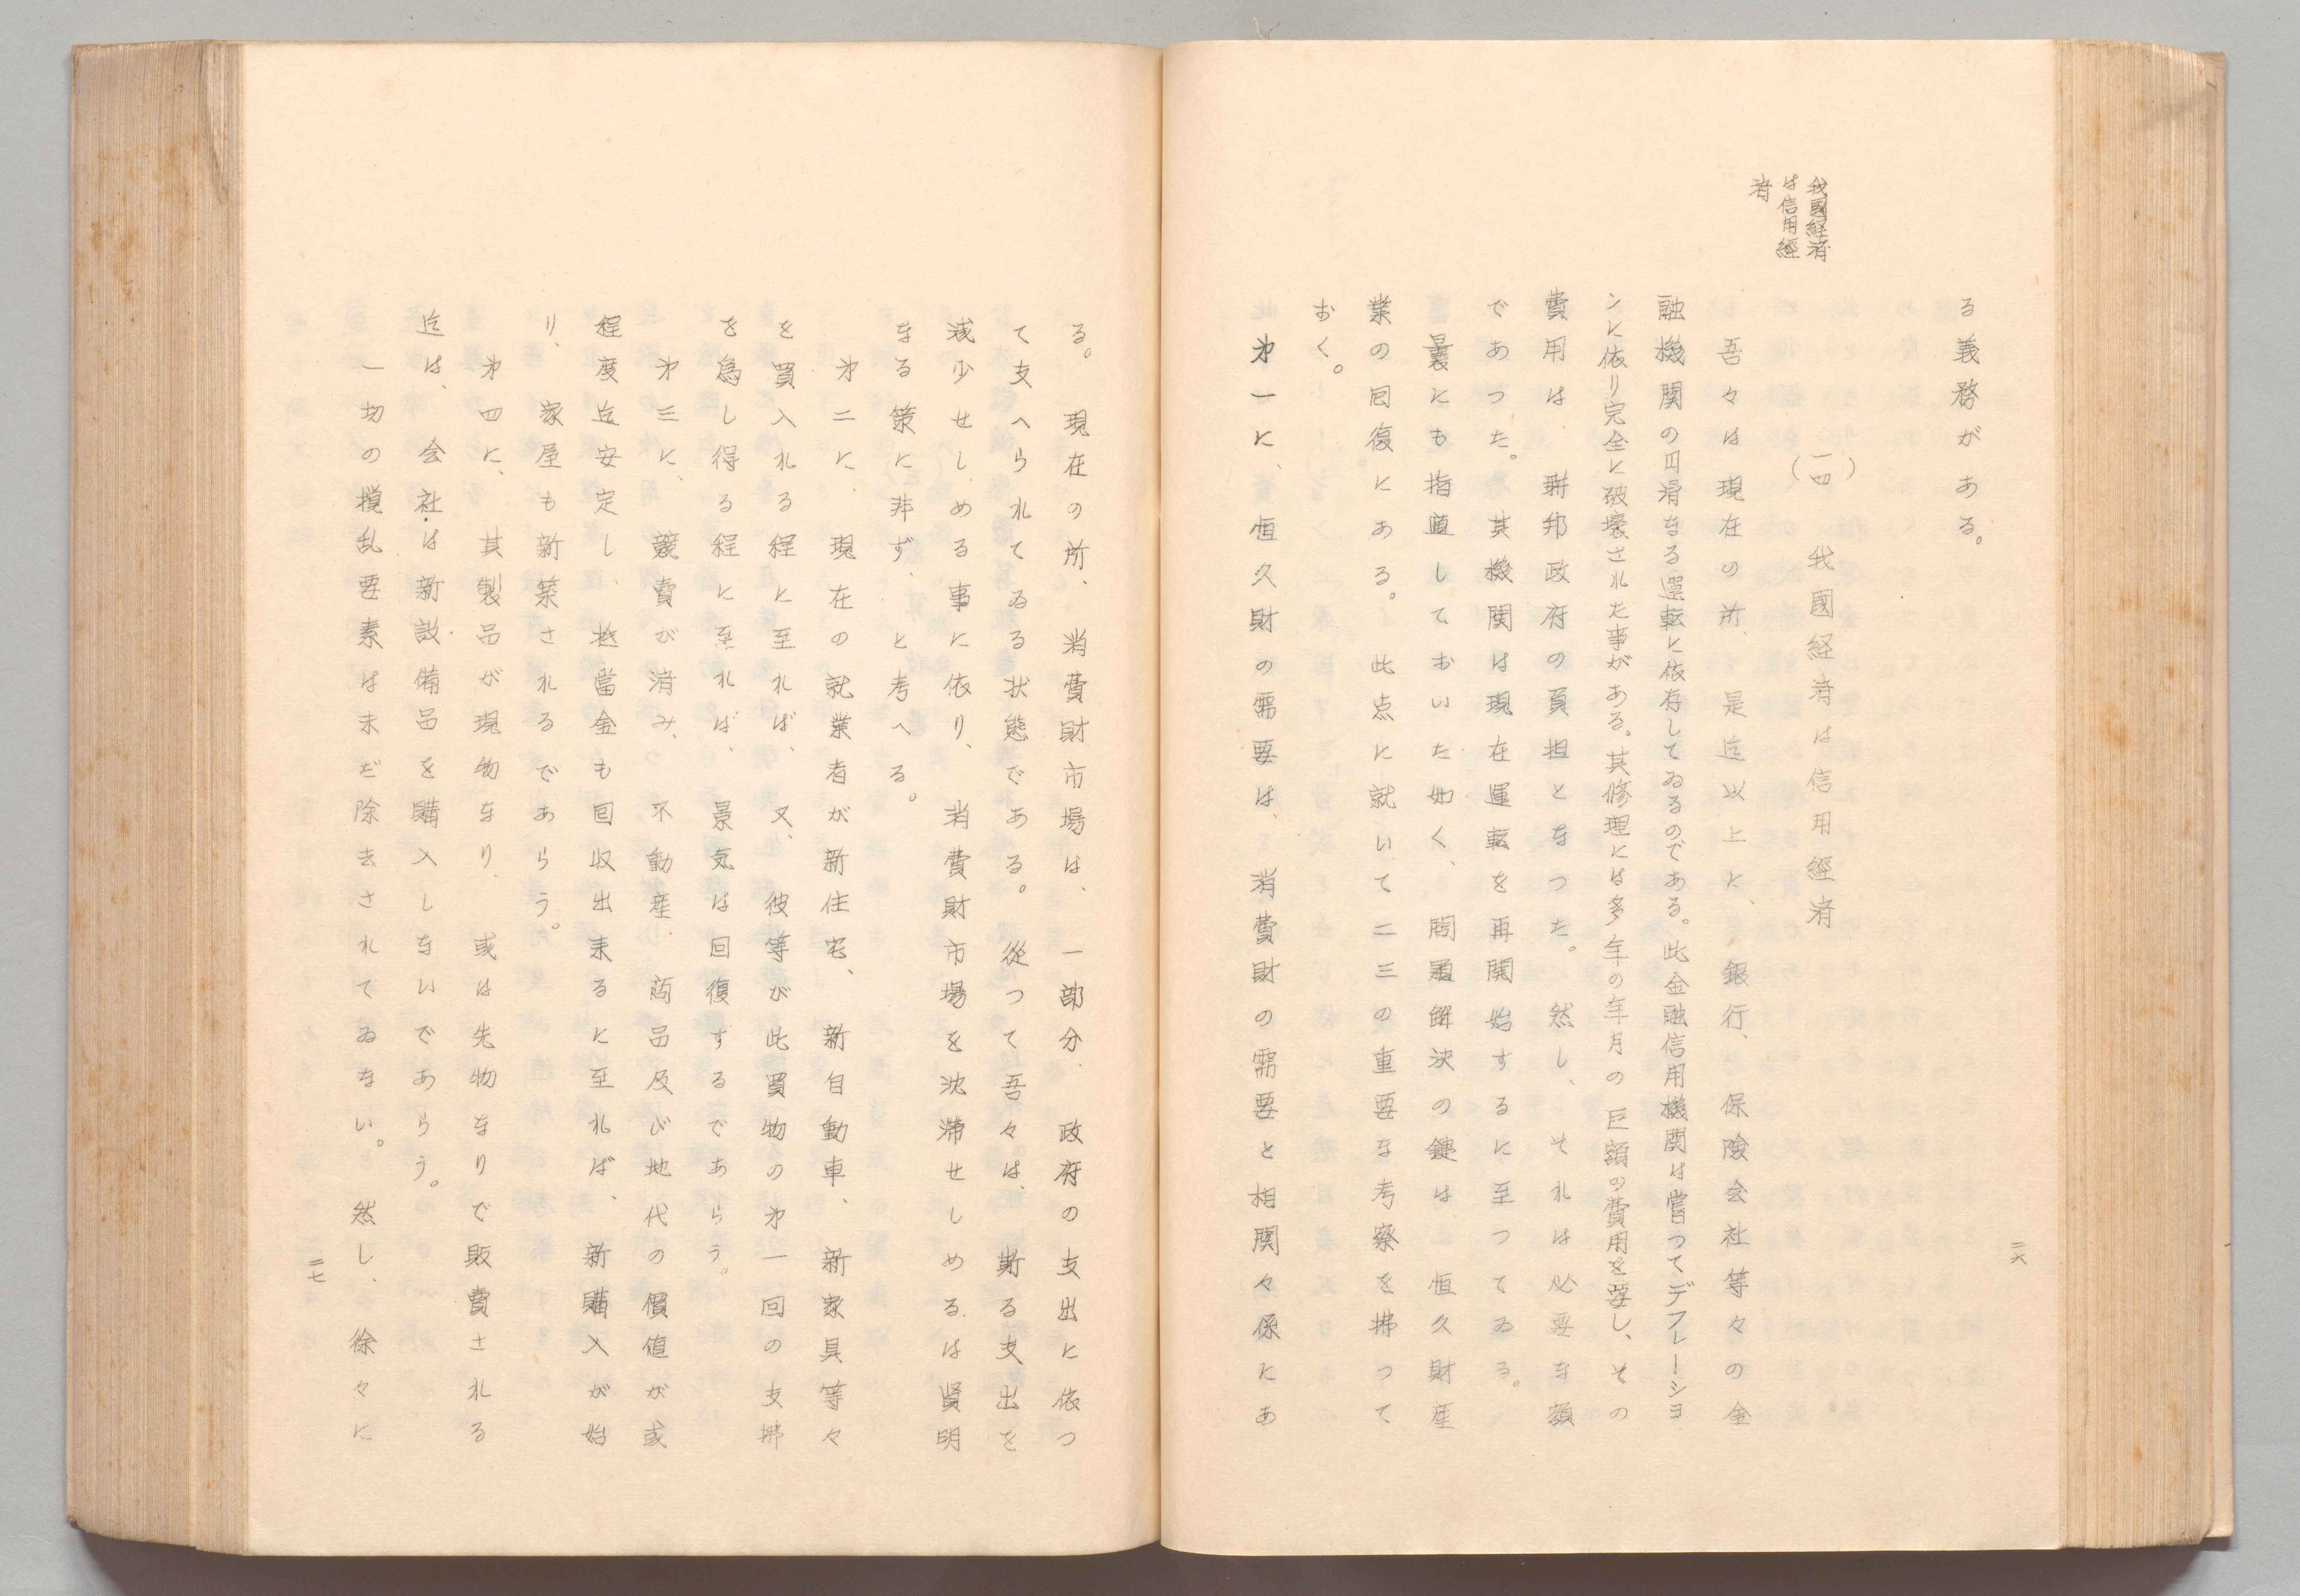 我國経済
は信用經
済
る義務がある。
(一四) 我國経済は信用經済
吾々は現在の所、是迄以上に、銀行、保険会社等々の金
融機関の円滑なる運転に依存してゐるのである。此金融信用機関は嘗つてデフレーシヨ
ンに依り完全に破壊された事がある。其修理には多年の年月の巨額の費用を要し、その
費用は、聯邦政府の負担となつた。然し、それは必要な額
であつた。其機関は現在運転を再開始するに至つてゐる。
曩にも指適しておいた如く、問題解決の鍵は恒久財産
業の回復にある。此点に就いて二三の重要な考察を拂つて
おく。
才一に、恒久財の需要は、消費財の需要と相関々係にあ
二六
る。現在の所、消費財市場は、一部分、政府の支出に依つ
て支へられてゐる状態である。從つて吾々は、斯る支出を
減少せしめる事に依り、消費財市場を沈滞せしめるは賢明
なる策に非ず、と考へる。
才二に、現在の就業者が新住宅、新自動車、新家具等々
を買入れる程に至れば、又、彼等が此買物の才一回の支拂
を為し得る程に至れば、景気は回復するであらう。
才三に、競賣が済み、不動産、商品及び地代の價値が或
程度迄安定し、抵當金も回収出来るに至れば、新購入が始
り、家屋も新築されるであらう。
才四に、其製品が現物なり、或は先物なりで販賣される
迄は、会社は新設備品を購入しないであらう。
一切の撹乱要素は未だ除去されてゐない。然し、徐々に
二七